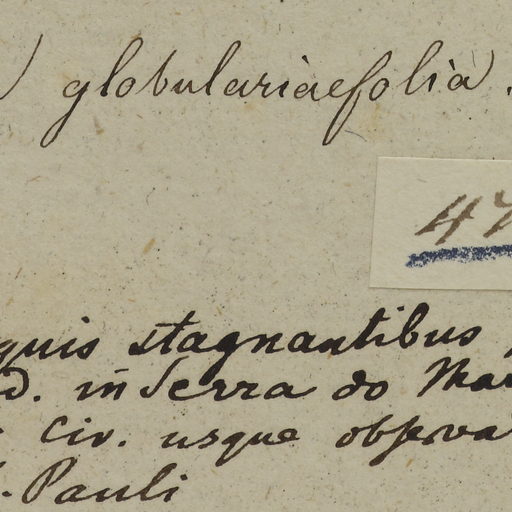 globulariaefolia.
47
quis stagnantibus
in Serra do Mar
Civ. usque observa
Pauli